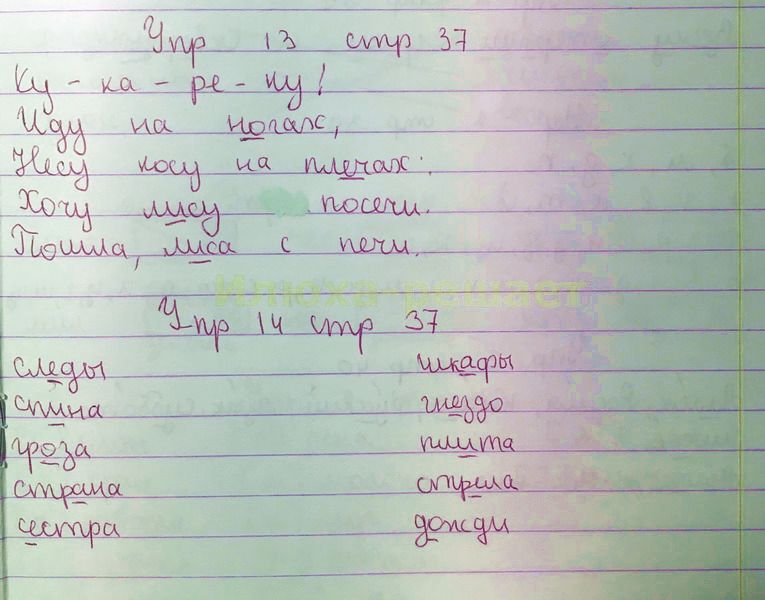 Упр 13 стр 37
Ку - ка - ре - ку!
Иду на ногах,
Несу косу на плечах.
Хочу лису посечи.
Пошла, лиса с печи.
Илюха-решает
Упр 14 стр 37
следы шкафы
спина гнездо
гроза плита
страна стрела
сестра дожди